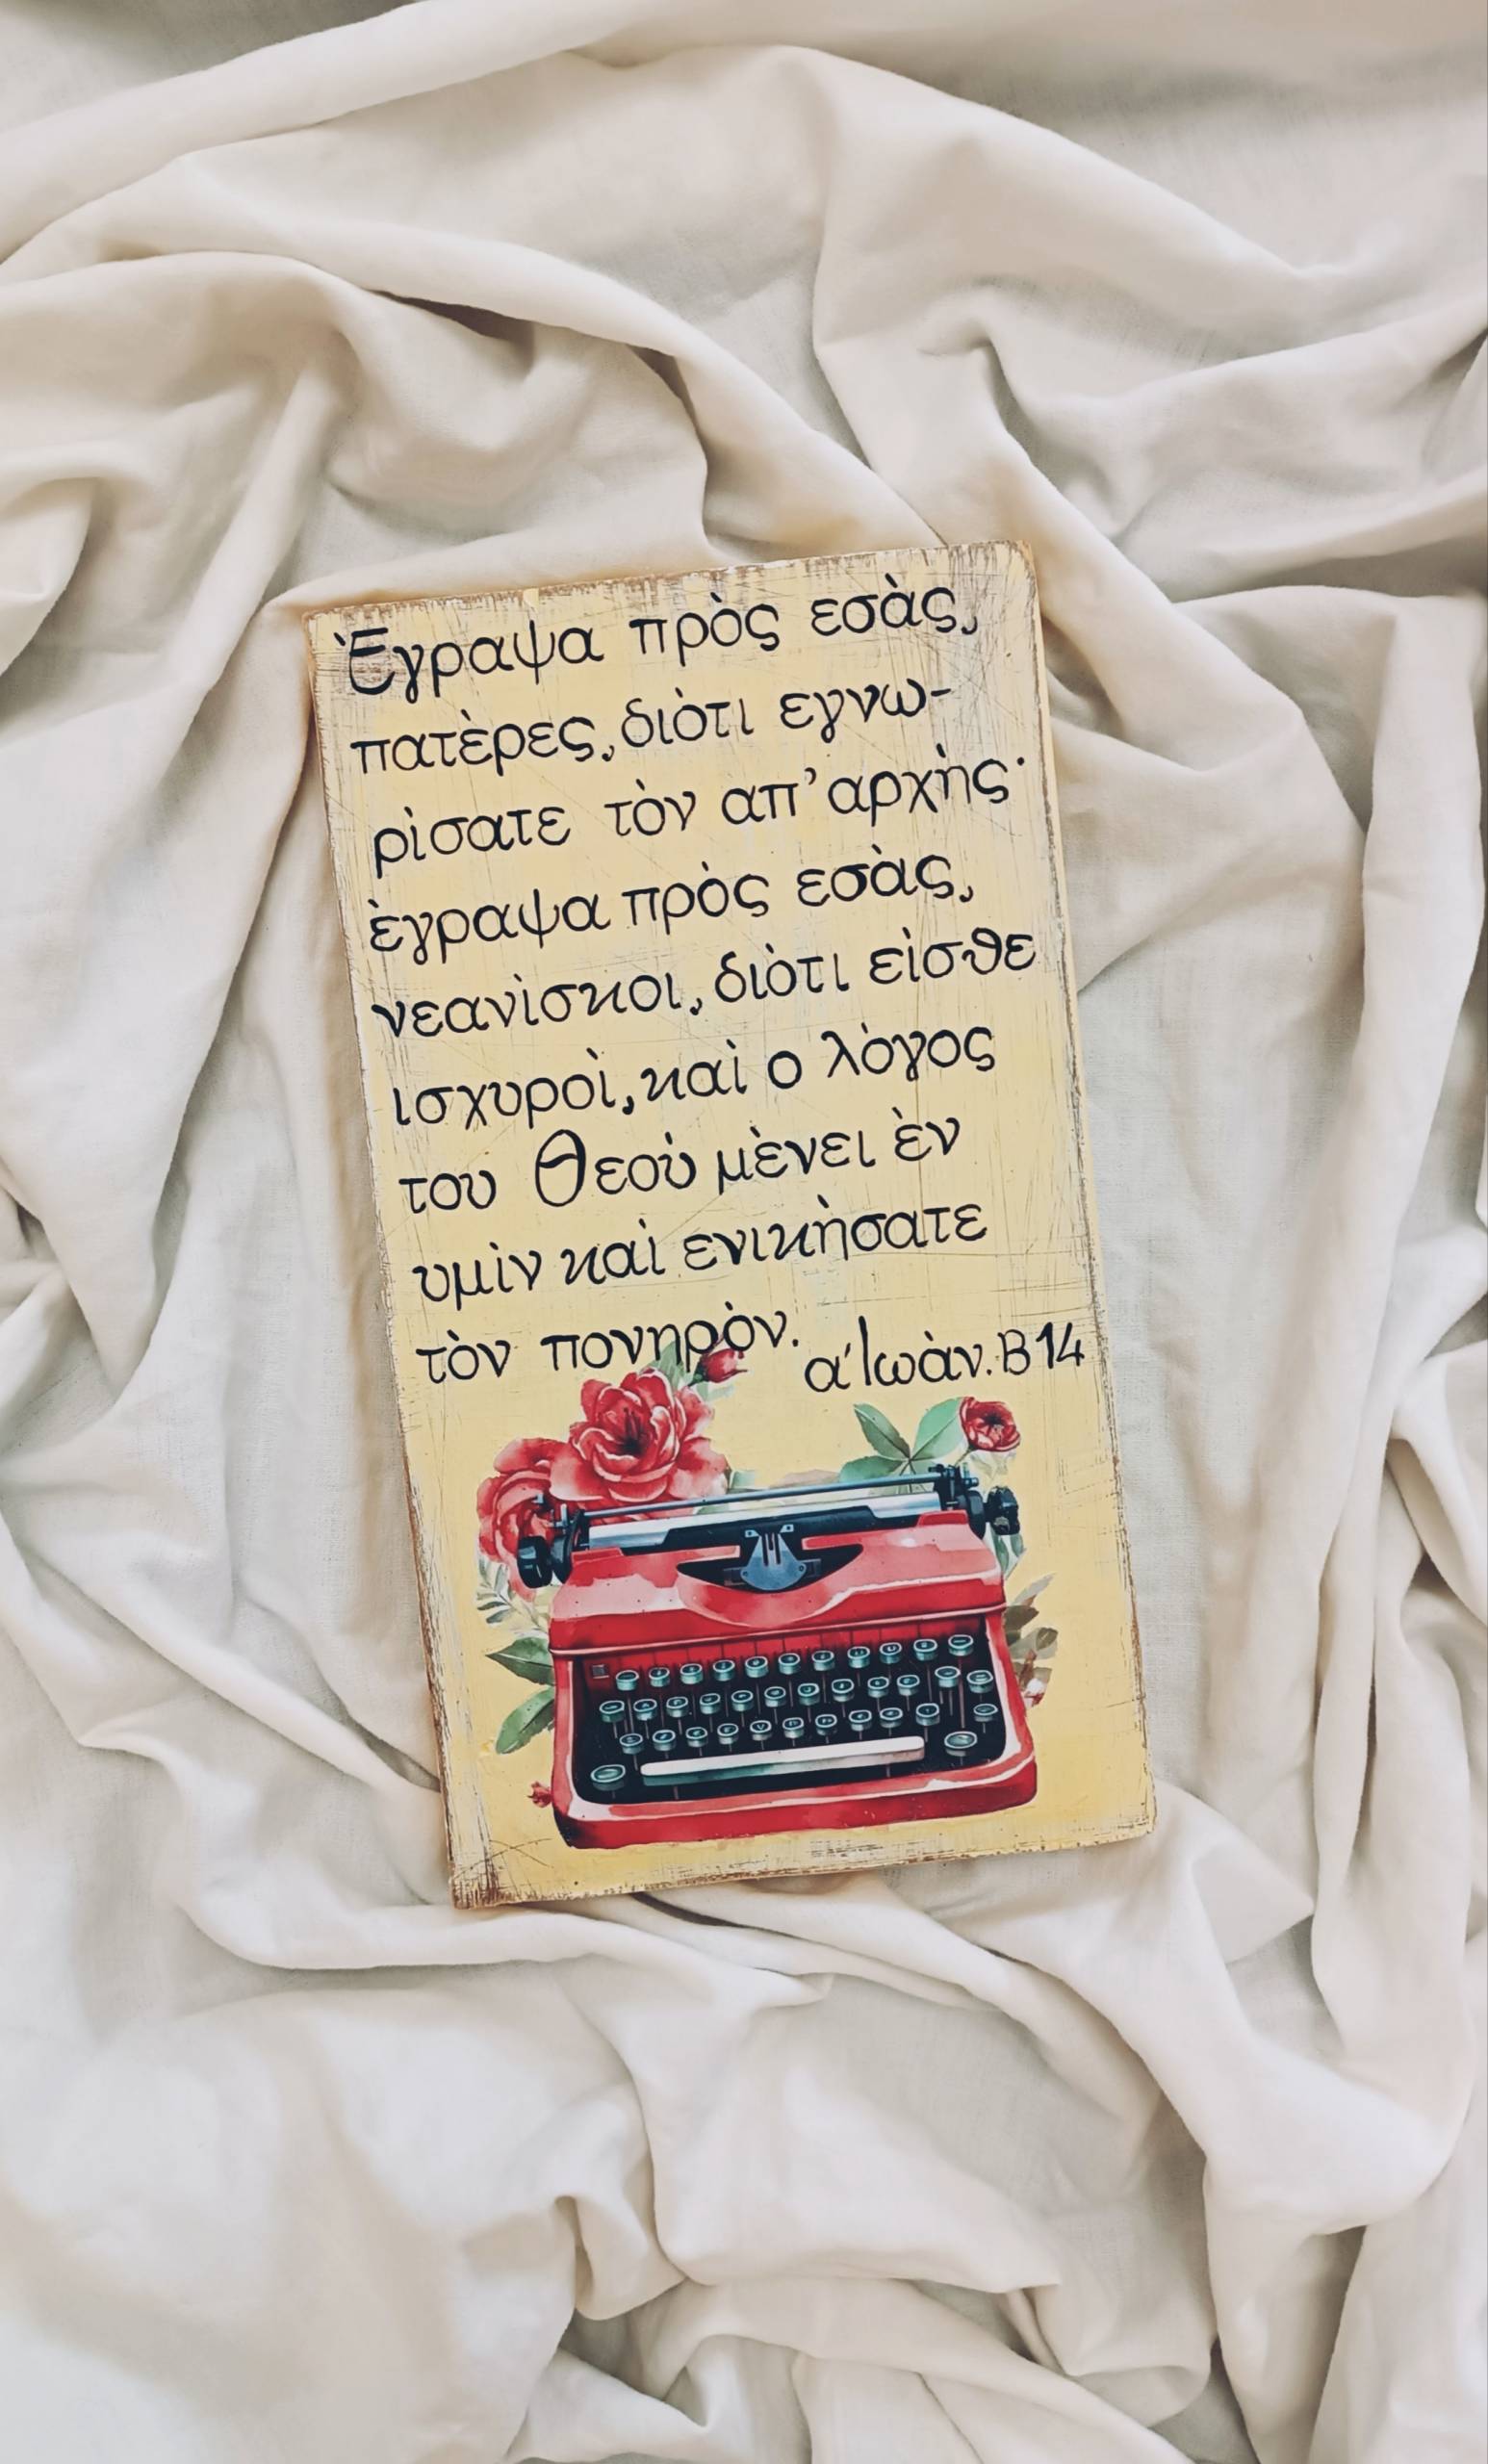 Έγραψα πρὸς εσὰς,
πατὲρες, διὸτι εγνω-
ρὶσατε τὸν απ' αρχὴς·
ὲγραψα πρὸς εσὰς,
νεανὶσκοι, διὸτι εὶσθε
ισχυροὶ, καὶ ο λὸγος
του Θεοὺ μὲνει ὲν
υμὶν καὶ ενικὴσατε
τὸν πονηρὸν.
α' Ιωὰν. Β 14